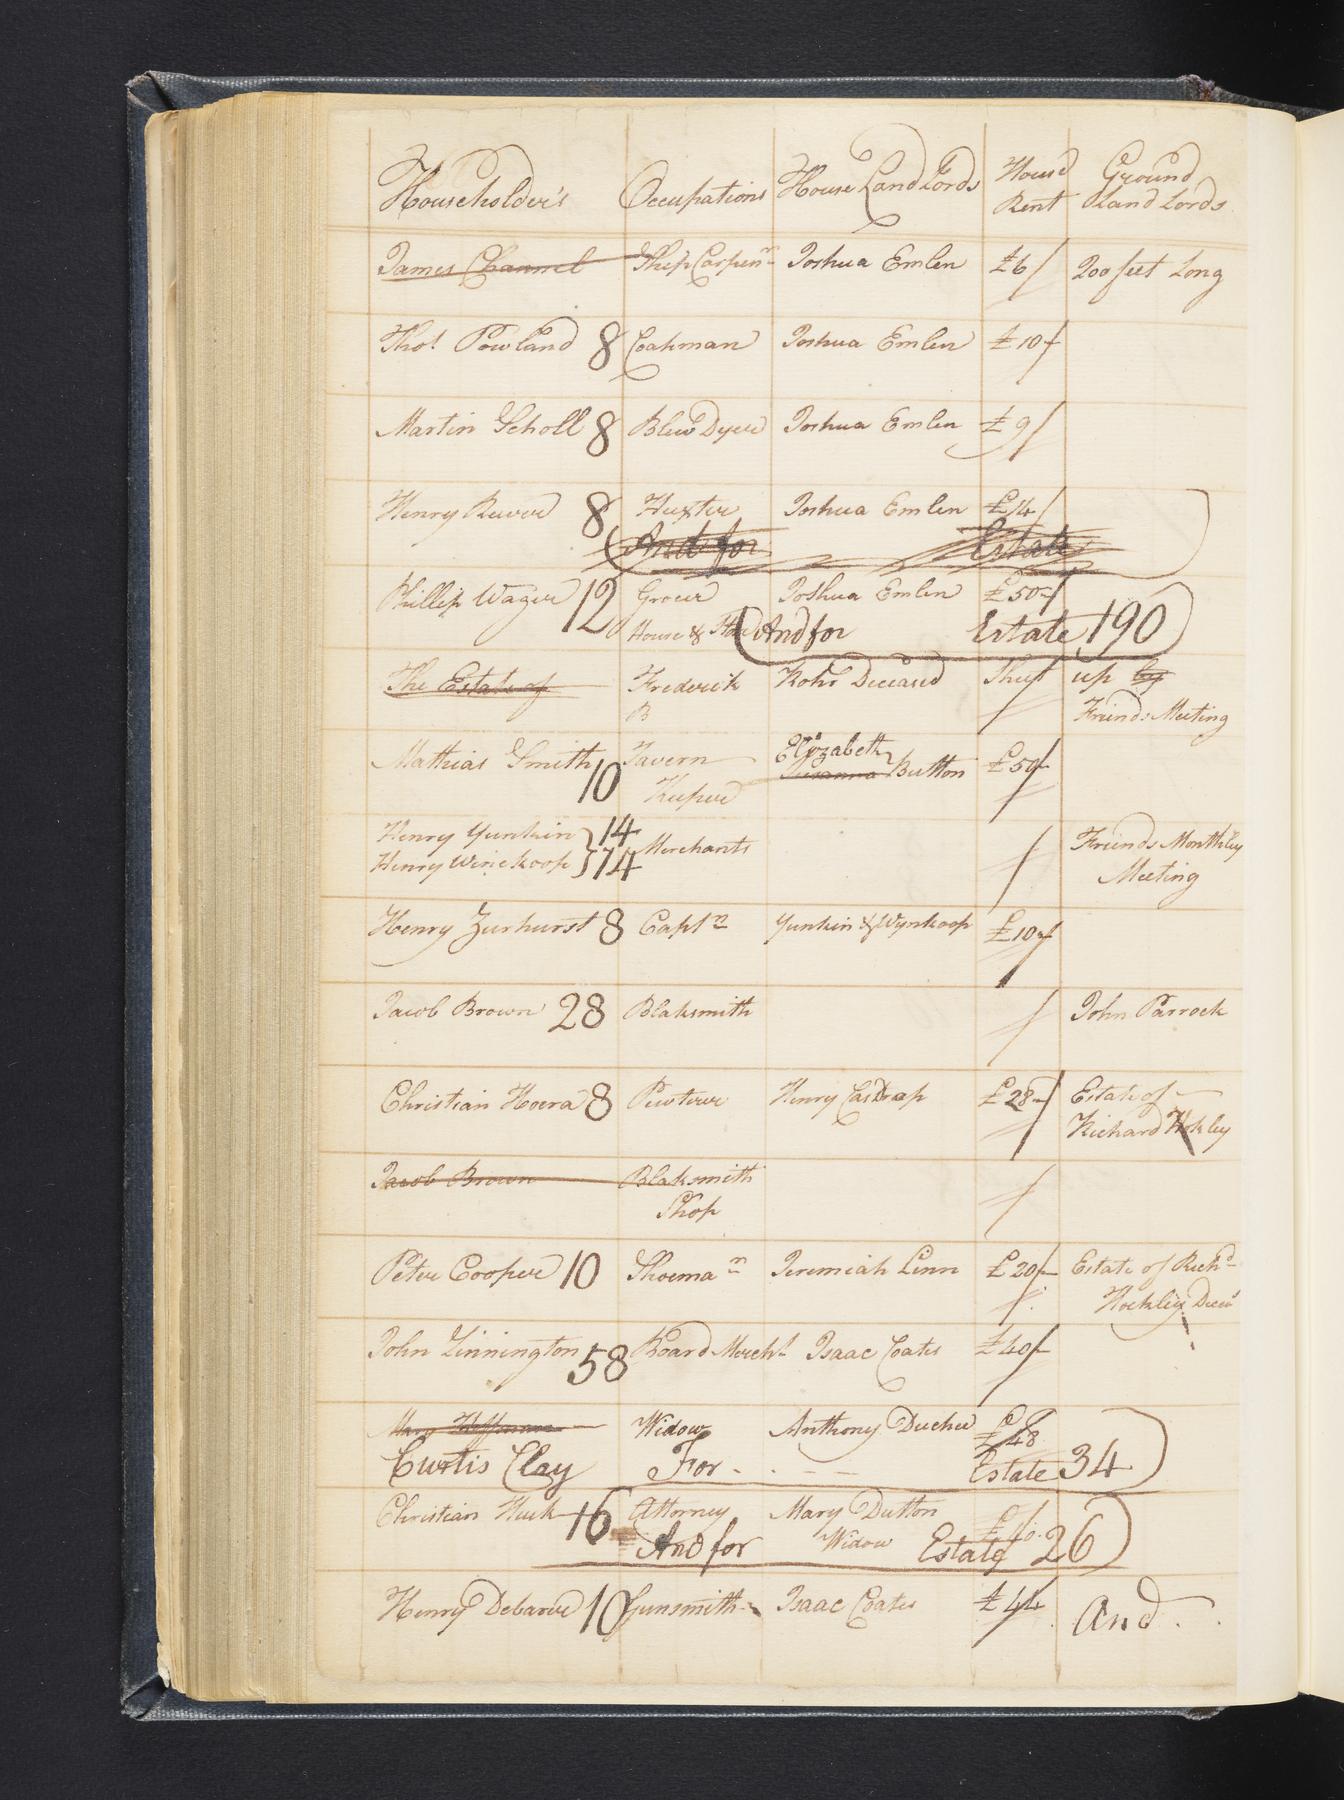 Householder's Occupations House Land Lords House Rent Ground Land Lords
James Channel Ship Carpenr Joshua Emlen £6/ 200 feet Long
Thos Powland 8 Coahman Joshua Emlen £10/
Martin Scholl 8 Blew Dyer Joshua Emlen £9/
Henry 8 Huxter Joshua Emlen £14/
And for Estate
Phillip Wager 12 Grocer Joshua Emlen £50/
House & And for Estate 190
The Estate of Frederick Kohr Deceased Shut up by
B Friends Meeting
Mathias Smith 10 Tavern Elizabeth
Keeper Susanna Button £50/
Henry Yunkin } 14 Merchants Friends Monthley
Henry Winekoop } 74 Meeting
Henry Zurhurst 8 Captn Yunkin & Wynkoop £10/
Jacob Brown 28 Blaksmith / John Parrock
Christian Hoera 8 Pewterer Henry Casdrap £28/ Estate of
Richard Hokley
Jacob Brown Blaksmith /
Shop
Peter Cooper 10 Shoeman Jeremiah Linn £20/ Estate of Richd
Hockley Decd
John Linnington 58 Board Mercht Isaac Coates £40/
Mary Heffernan Widow Anthony Duche £48
Curtis Clay For Estate 34
Christian Huck 16 Attorney Mary Dutton £40
And for Widow Estate 26
Henry Debarer 10 Gunsmith Isaac Coates £44 And